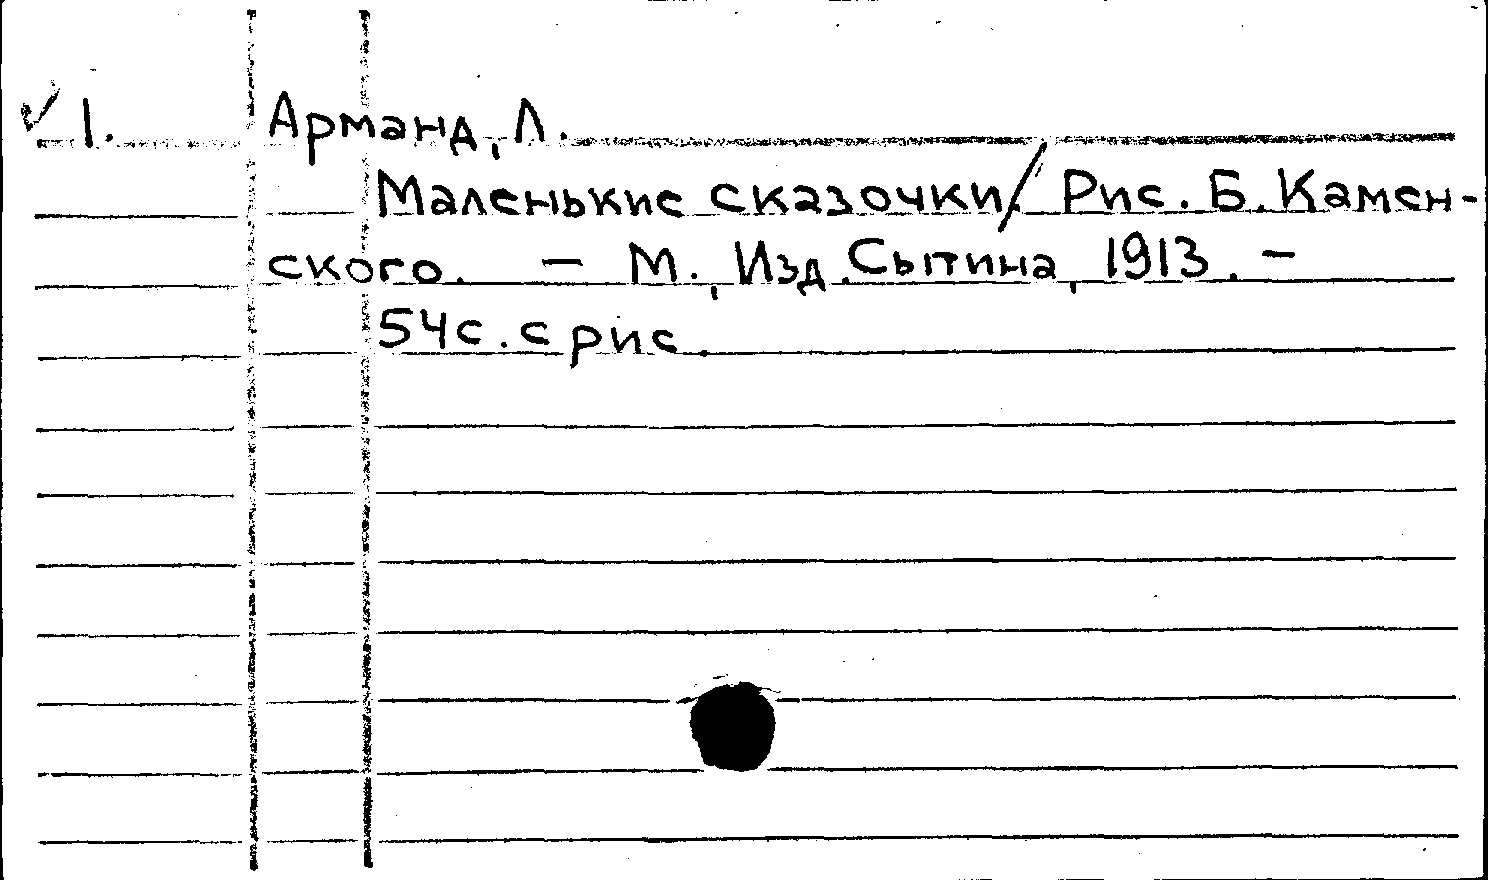 ✓ 1. Арманд, Л.
Маленькие сказочки/. Рис. Б. Камен-
ского. — М., Изд. Сытина, 1913. —
54с. с рис.